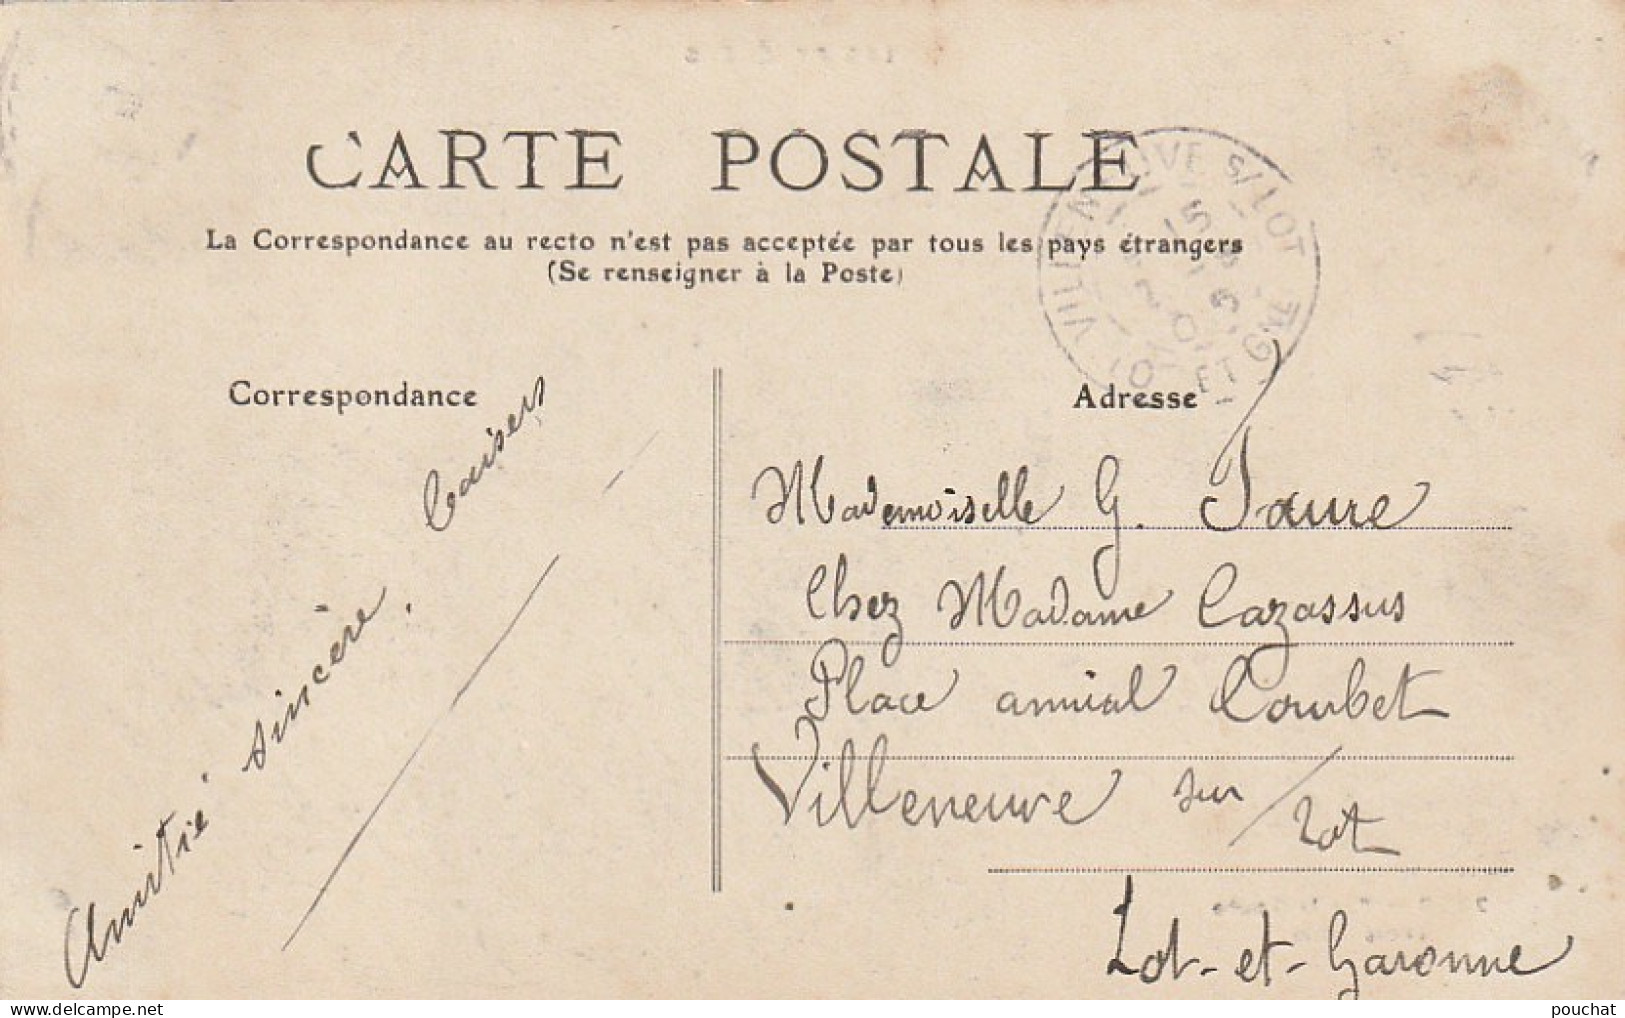 CARTE POSTALE
La Correspondance au recto n'est pas acceptée par tous les pays étrangers
(Se renseigner à la Poste)
VILLENEUVE S/LOT
ET GNE
Correspondance
Amitié sincère. baisers
Adresse
Mademoiselle G. Faure
Chez Madame Cazassus
Place amiral Courbet
Villeneuve sur / Lot
Lot-et-Garonne
pouchat